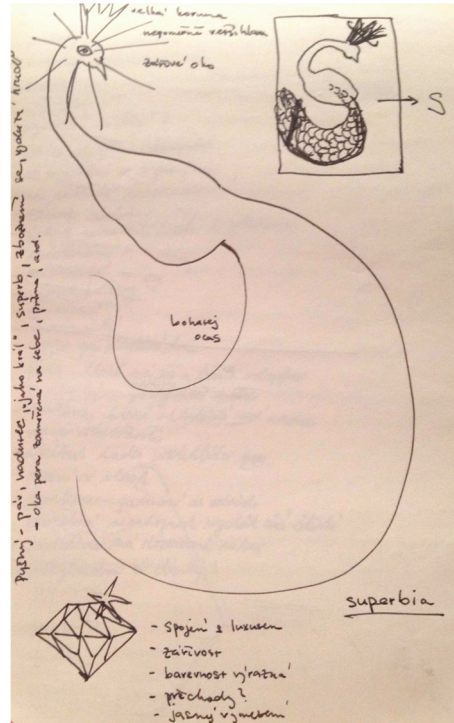 velká koruna
nepoměrně větší hlava
zářivé oko
S
Pyšný - páv, nadutec, "jako král", superb, zbožnění se,
- oka pera zaměřená na sebe, prázdná, atd.
bohatej
ocas
superbia
- spojení s luxusem
- zářivost
- barevnost výrazná
- přechody?
- jasný vymezení